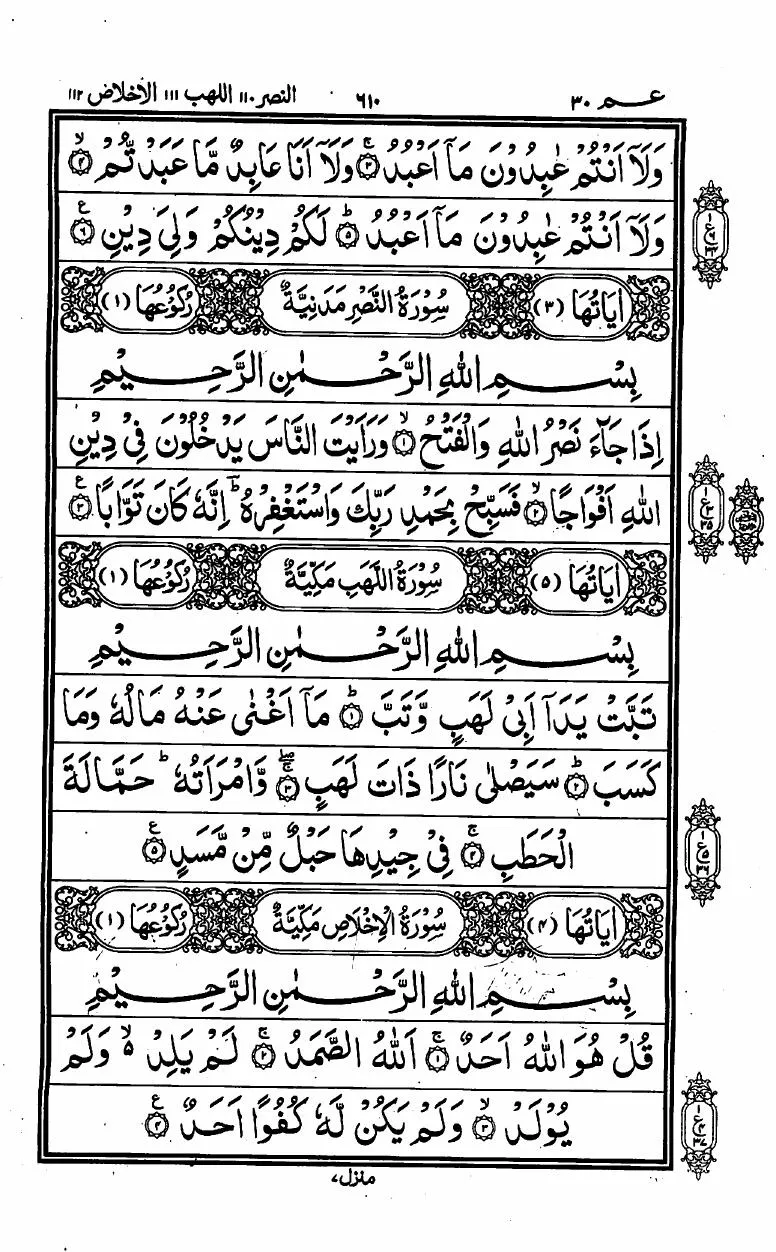 عـــم ٣٠ ٦١٠ النصر ١١٠ اللهب ١١١ الاخلاص ١١٢
وَلَاۤ اَنْتُمْ عٰبِدُوْنَ مَاۤ اَعْبُدُ ۚ ﴿٣﴾ وَلَاۤ اَنَا عَابِدٌ مَّا عَبَدْتُّمْ ۙ ﴿٤﴾
وَلَاۤ اَنْتُمْ عٰبِدُوْنَ مَاۤ اَعْبُدُ ؕ ﴿٥﴾ لَكُمْ دِيْنُكُمْ وَلِىَ دِيْنِ ﴿٦﴾ ع
اٰيَاتُهَا (٣) سُوْرَةُ النَّصْرِ مَدَنِيَّةٌ رُكُوْعُهَا (١)
بِسْمِ اللّٰهِ الرَّحْمٰنِ الرَّحِيْمِ
اِذَا جَآءَ نَصْرُ اللّٰهِ وَالْفَتْحُ ۙ ﴿١﴾ وَرَاَيْتَ النَّاسَ يَدْخُلُوْنَ فِىْ دِيْنِ
اللّٰهِ اَفْوَاجًا ۙ ﴿٢﴾ فَسَبِّحْ بِحَمْدِ رَبِّكَ وَاسْتَغْفِرْهُ ؕ اِنَّهٗ كَانَ تَوَّابًا ﴿٣﴾ ع
اٰيَاتُهَا (٥) سُوْرَةُ اللَّهَبِ مَكِّيَّةٌ رُكُوْعُهَا (١)
بِسْمِ اللّٰهِ الرَّحْمٰنِ الرَّحِيْمِ
تَبَّتْ يَدَاۤ اَبِىْ لَهَبٍ وَّتَبَّ ؕ ﴿١﴾ مَاۤ اَغْنٰى عَنْهُ مَالُهٗ وَمَا
كَسَبَ ؕ ﴿٢﴾ سَيَصْلٰى نَارًا ذَاتَ لَهَبٍ ۖ ۚ ﴿٣﴾ وَّامْرَاَتُهٗ ؕ حَمَّالَةَ
الْحَطَبِ ۚ ﴿٤﴾ فِىْ جِيْدِهَا حَبْلٌ مِّنْ مَّسَدٍ ﴿٥﴾ ع
اٰيَاتُهَا (٤) سُوْرَةُ الْاِخْلَاصِ مَكِّيَّةٌ رُكُوْعُهَا (١)
بِسْمِ اللّٰهِ الرَّحْمٰنِ الرَّحِيْمِ
قُلْ هُوَ اللّٰهُ اَحَدٌ ۚ ﴿١﴾ اَللّٰهُ الصَّمَدُ ۚ ﴿٢﴾ لَمْ يَلِدْ ۙ۬ وَلَمْ
يُوْلَدْ ۙ ﴿٣﴾ وَلَمْ يَكُنْ لَّهٗ كُفُوًا اَحَدٌ ﴿٤﴾ ع
منزل ٧